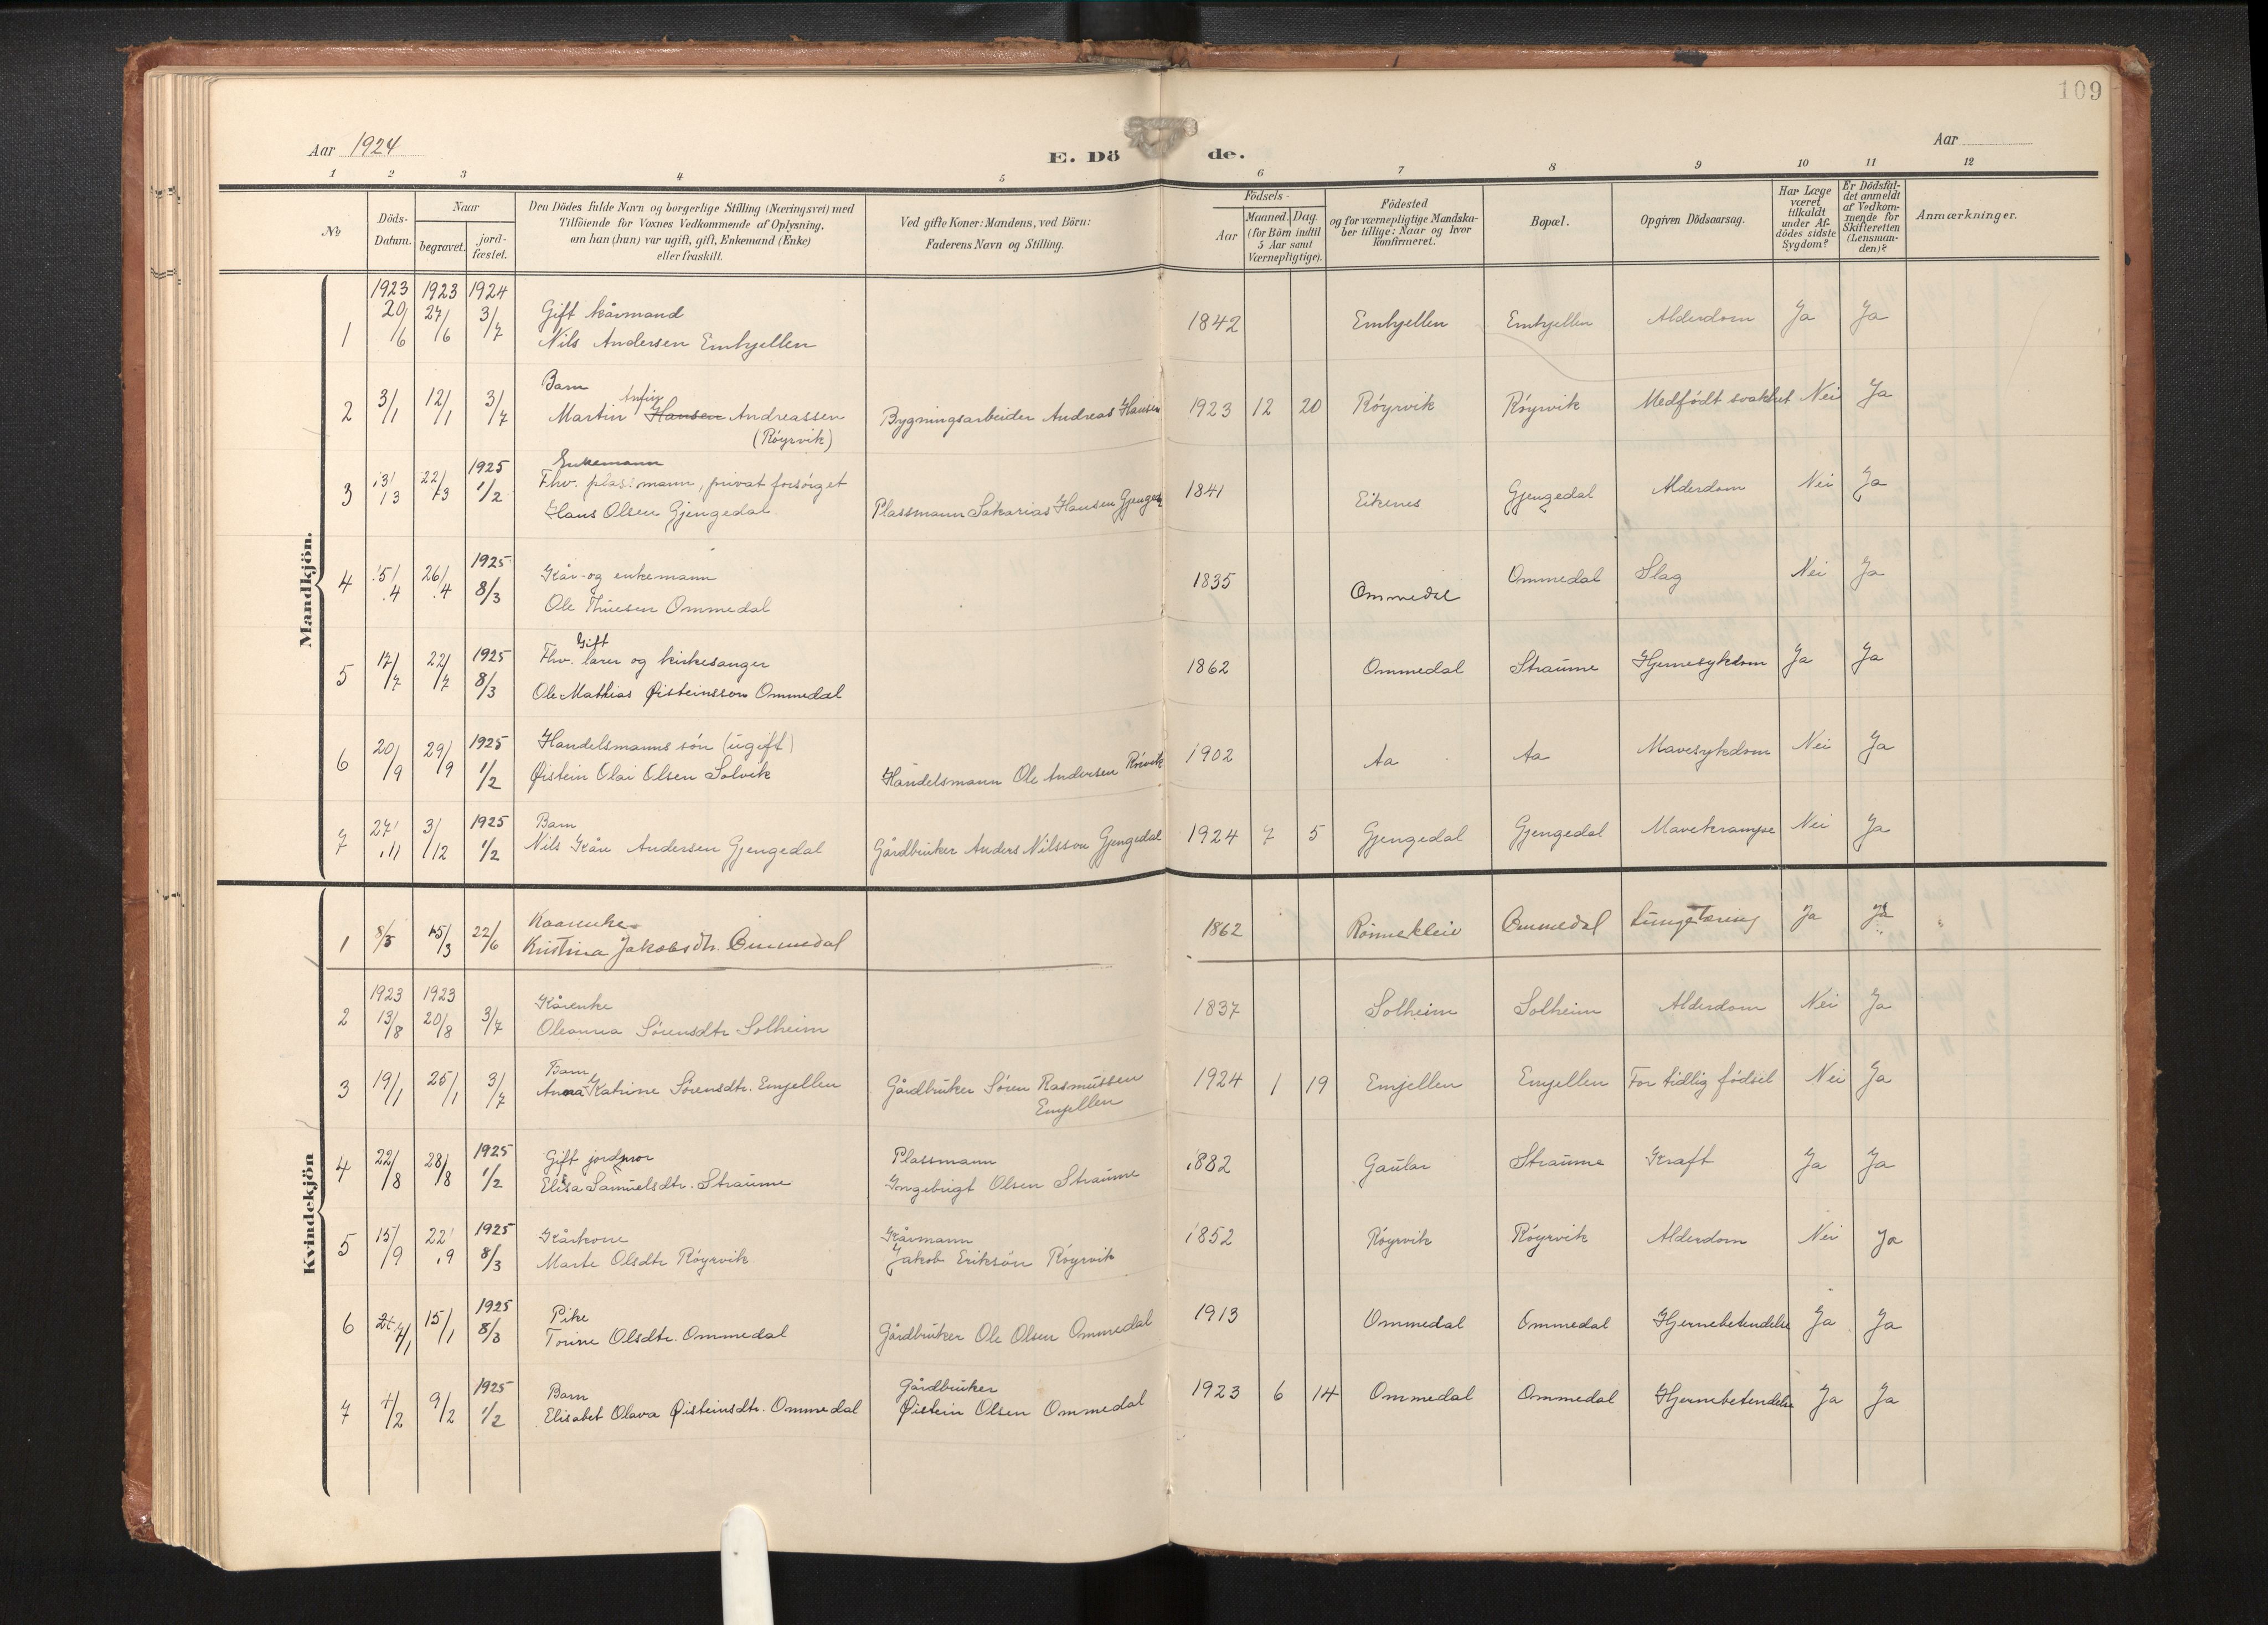 109
Aar 1924
E. Dö de.
Aar
1 2 3 4 5 6 7 8 9 10 11 12
No
Döds-
Datum.
Naar
begravet.
jord-
fæstet.
Den Dödes fulde Navn og borgerlige Stilling (Næringsvei) med
Tilföiende for Voxnes Vedkommende af Oplysning,
om han (hun) var ugift, gift, Enkemand (Enke)
eller fraskilt.
Ved gifte Koner: Mandens, ved Börn:
Faderens Navn og Stilling.
Födsels-
Aar
Maaned. Dag.
(for Börn indtil
5 Aar samt
Værnepligtige).
Födested
og for værnepligtige Mandska-
ber tillige: Naar og hvor
konfirmeret.
Bopæl.
Opgiven Dödsaarsag.
Har Læge
været
tilkaldt
under Af-
dödes sidste
Sygdom?
Er Dödsfal-
det anmeldt
af Vedkom-
mende for
Skifteretten
(Lensman-
den)?
Anmærkninger.
Mandkjön.
1923 1923 1924
1 20/6 27/6 3/7 Gift kårmand
Nils Andersen Emhjellen 1842 Emhjellen Emhjellen Alderdom Ja Ja
Barn
Anfin
2 3/1 12/1 3/7 Martin Hansen Andreassen Bygningsarbeider Andreas Hansen 1923 12 20 Röyrvik Röyrvik Medfödt svakhet Nei Ja
(Röyrvik)
1925 Enkemann
3 13/3 22/3 1/2 Fhv. plassmann, privat forsörget
Hans Olsen Gjengedal Plassmann Sakarias Hansen Gjengedal 1841 Eikenes Gjengedal Alderdom Nei Ja
1925
4 15/4 26/4 8/3 Kår- og enkemann
Ole Thuesen Ommedal 1835 Ommedal Ommedal Slag Nei Ja
1925 Gift
5 17/7 22/7 8/3 Fhv. lærer og kirkesanger
Ole Mathias Øisteinsson Ommedal 1862 Ommedal Straume Hjernesykdom Ja Ja
1925 Handelsmanns sön (ugift)
6 20/9 29/9 1/2 Øistein Olai Olsen Solvik Handelsmann Ole Andersen 1902 Aa Aa Mavesykdom Nei Ja
1925 Barn
7 27/11 3/12 1/2 Nils Kåre Andersen Gjengedal Gårdbruker Anders Nilsson Gjengedal 1924 7 5 Gjengedal Gjengedal Mavekrampe Nei Ja
Kvindekjön
Kaarenke
1 8/3 15/3 22/6 Kristina Jakobsdtr. Ommedal 1862 Rönnekleiv Ommedal Lungetæring Ja Ja
1923 1923 Kårenke
2 13/8 20/8 3/7 Oleanna Sörensdtr Solheim 1837 Solheim Solheim Alderdom Nei Ja
Barn
3 19/1 25/1 3/7 Anna Katrine Sörensdtr. Emjellen Gårdbruker Sören Rasmussen
Emjellen 1924 1 19 Emjellen Emjellen For tidlig födsel Nei Ja
1925 Gift jordmor Plassmann
4 22/8 28/8 1/2 Elisa Samuelsdtr. Straume Ingebrigt Olsen Straume 1882 Gaular Straume Kræft Ja Ja
1925 Kårkone Kårmann
5 15/9 22/9 8/3 Marte Olsdtr Röyrvik Jakob Eriksön Röyrvik 1852 Röyrvik Röyrvik Alderdom Nei Ja
1925 Pike
6 15/1 8/3 Torine Olsdtr. Ommedal Gårdbruker Ole Olsen Ommedal 1913 Ommedal Ommedal Hjernebetendelse Ja Ja
1925 Barn Gårdbruker
7 4/2 9/2 1/2 Elisabet Olava Øisteinsdtr. Ommedal Øistein Olsen Ommedal 1923 6 14 Ommedal Ommedal Hjernebetendelse Ja Ja